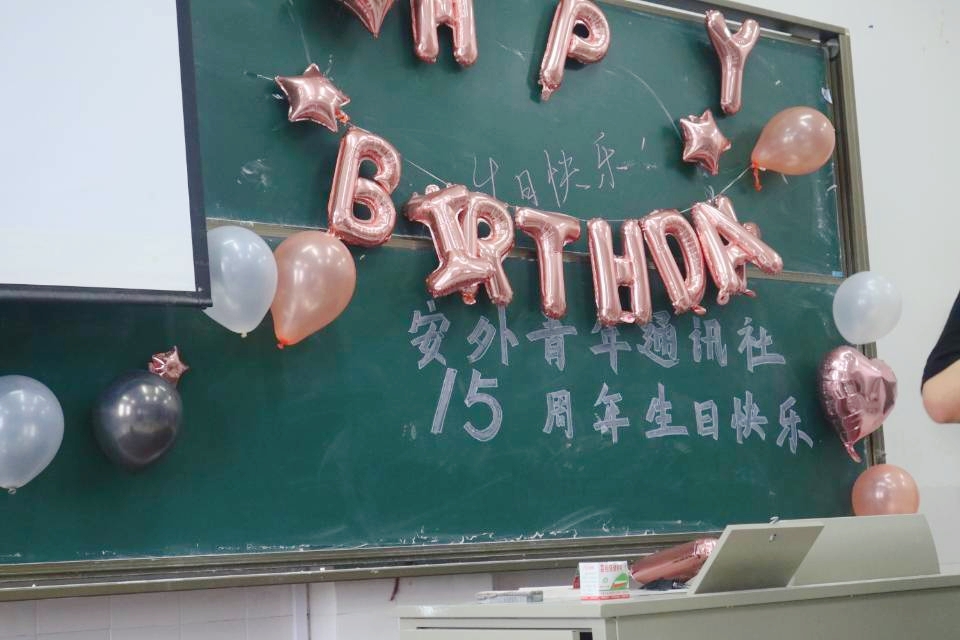 H P Y
日快乐!
BIRTHDA
安外青年通讯社
15周年生日快乐